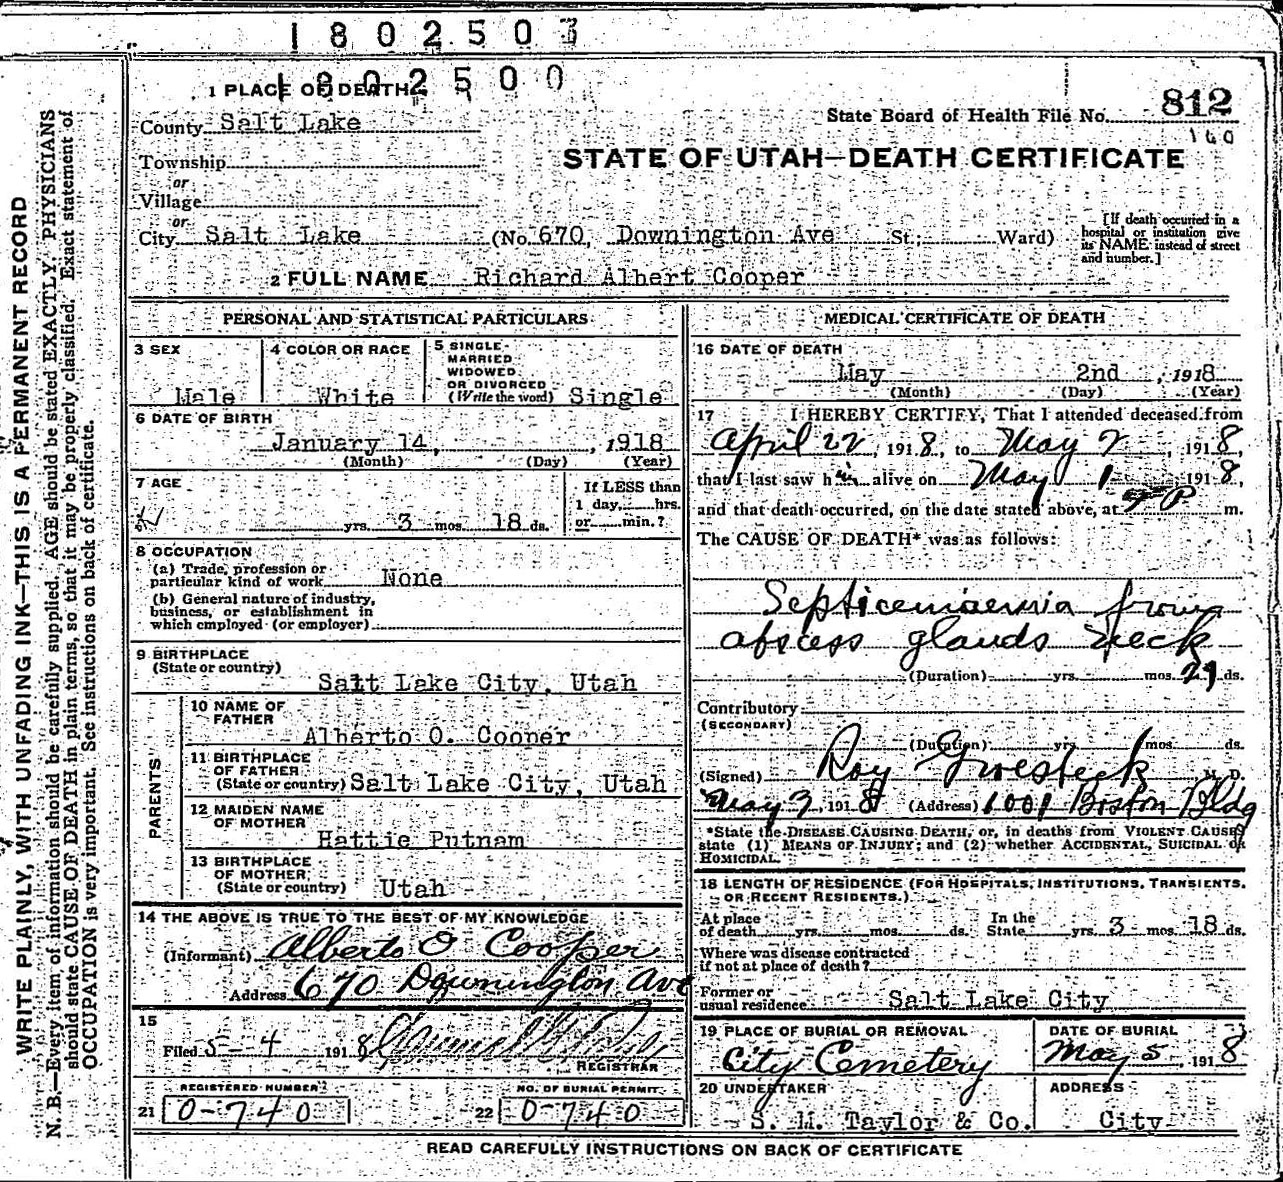 1802503
1802500
1 PLACE OF DEATH
County Salt Lake
State Board of Health File No. 812
160
Township
or
Village
or
STATE OF UTAH—DEATH CERTIFICATE
City Salt Lake (No. 670, Downington Ave St.; Ward)
[If death occurred in a
hospital or institution give
its NAME instead of street
and number.]
2 FULL NAME Richard Albert Cooper
PERSONAL AND STATISTICAL PARTICULARS
3 SEX
Male
4 COLOR OR RACE
White
5 SINGLE
MARRIED
WIDOWED
OR DIVORCED
(Write the word) Single
6 DATE OF BIRTH
January 14, , 1918
(Month) (Day) (Year)
7 AGE
yrs. 3 mos. 18 ds.
If LESS than
1 day, hrs.
or min.?
8 OCCUPATION
(a) Trade, profession or
particular kind of work None
(b) General nature of industry,
business, or establishment in
which employed (or employer)
9 BIRTHPLACE
(State or country)
Salt Lake City, Utah
PARENTS
10 NAME OF
FATHER
Alberto O. Cooper
11 BIRTHPLACE
OF FATHER
(State or country) Salt Lake City, Utah
12 MAIDEN NAME
OF MOTHER
Hattie Putnam
13 BIRTHPLACE
OF MOTHER
(State or country) Utah
14 THE ABOVE IS TRUE TO THE BEST OF MY KNOWLEDGE
(Informant) Alberto O Cooper
Address 670 Downington Ave
15
Filed 5-4 1918
REGISTRAR
REGISTERED NUMBER
21 0-740
NO. OF BURIAL PERMIT
22 0-740
MEDICAL CERTIFICATE OF DEATH
16 DATE OF DEATH
May 2nd , 1918
(Month) (Day) (Year)
17 I HEREBY CERTIFY, That I attended deceased from
April 22, 1918, to May 2, 1918,
that I last saw him alive on May 1 1918,
and that death occurred, on the date stated above, at P m.
The CAUSE OF DEATH* was as follows:
Septicemaemia from
abscess glands neck
(Duration) yrs. mos. 29 ds.
Contributory
(SECONDARY)
(Duration) yrs. mos. ds.
(Signed) Roy M. D.
May 3, 1918 (Address) 1001 Boston Bldg
*State the DISEASE CAUSING DEATH, or, in deaths from VIOLENT CAUSES
state (1) MEANS OF INJURY; and (2) whether ACCIDENTAL, SUICIDAL or
HOMICIDAL.
18 LENGTH OF RESIDENCE (FOR HOSPITALS, INSTITUTIONS, TRANSIENTS,
OR RECENT RESIDENTS.)
At place
of death yrs. mos. ds.
In the
State yrs. 3 mos. 18 ds.
Where was disease contracted
if not at place of death?
Former or
usual residence Salt Lake City
19 PLACE OF BURIAL OR REMOVAL
City Cemetery
DATE OF BURIAL
May 5, 1918
20 UNDERTAKER
S. M. Taylor & Co.
ADDRESS
City
READ CAREFULLY INSTRUCTIONS ON BACK OF CERTIFICATE
WRITE PLAINLY, WITH UNFADING INK—THIS IS A PERMANENT RECORD
N. B.—Every item of information should be carefully supplied. AGE should be stated EXACTLY. PHYSICIANS
should state CAUSE OF DEATH in plain terms, so that it may be properly classified. Exact statement of
OCCUPATION is very important. See instructions on back of certificate.